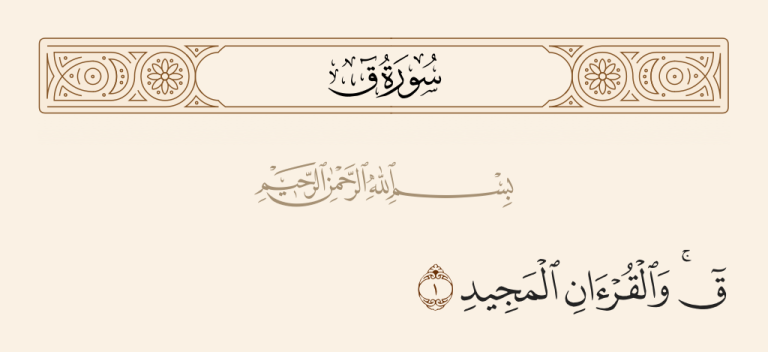 سُورَةُ قٓ
بِسْمِ ٱللَّهِ ٱلرَّحْمَٰنِ ٱلرَّحِيمِ
قٓ ۚ وَٱلْقُرْءَانِ ٱلْمَجِيدِ ١